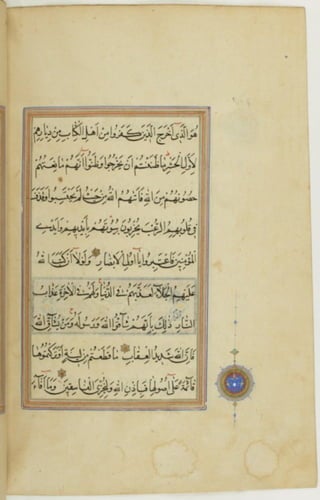 هُوَ الَّذِي أَخْرَجَ الَّذِينَ كَفَرُوا مِنْ أَهْلِ الْكِتَابِ مِنْ دِيَارِهِمْ
لِأَوَّلِ الْحَشْرِ مَا ظَنَنْتُمْ أَنْ يَخْرُجُوا وَظَنُّوا أَنَّهُمْ مَانِعَتُهُمْ
حُصُونُهُمْ مِنَ اللَّهِ فَأَتَاهُمُ اللَّهُ مِنْ حَيْثُ لَمْ يَحْتَسِبُوا وَقَذَفَ
فِي قُلُوبِهِمُ الرُّعْبَ يُخْرِبُونَ بُيُوتَهُمْ بِأَيْدِيهِمْ وَأَيْدِي
الْمُؤْمِنِينَ فَاعْتَبِرُوا يَا أُولِي الْأَبْصَارِ وَلَوْلَا أَنْ كَتَبَ اللَّهُ
عَلَيْهِمُ الْجَلَاءَ لَعَذَّبَهُمْ فِي الدُّنْيَا وَلَهُمْ فِي الْآخِرَةِ عَذَابُ
النَّارِ ذَلِكَ بِأَنَّهُمْ شَاقُّوا اللَّهَ وَرَسُولَهُ وَمَنْ يُشَاقِّ اللَّهَ
فَإِنَّ اللَّهَ شَدِيدُ الْعِقَابِ مَا قَطَعْتُمْ مِنْ لِينَةٍ أَوْ تَرَكْتُمُوهَا
قَائِمَةً عَلَى أُصُولِهَا فَبِإِذْنِ اللَّهِ وَلِيُخْزِيَ الْفَاسِقِينَ وَمَا أَفَاءَ